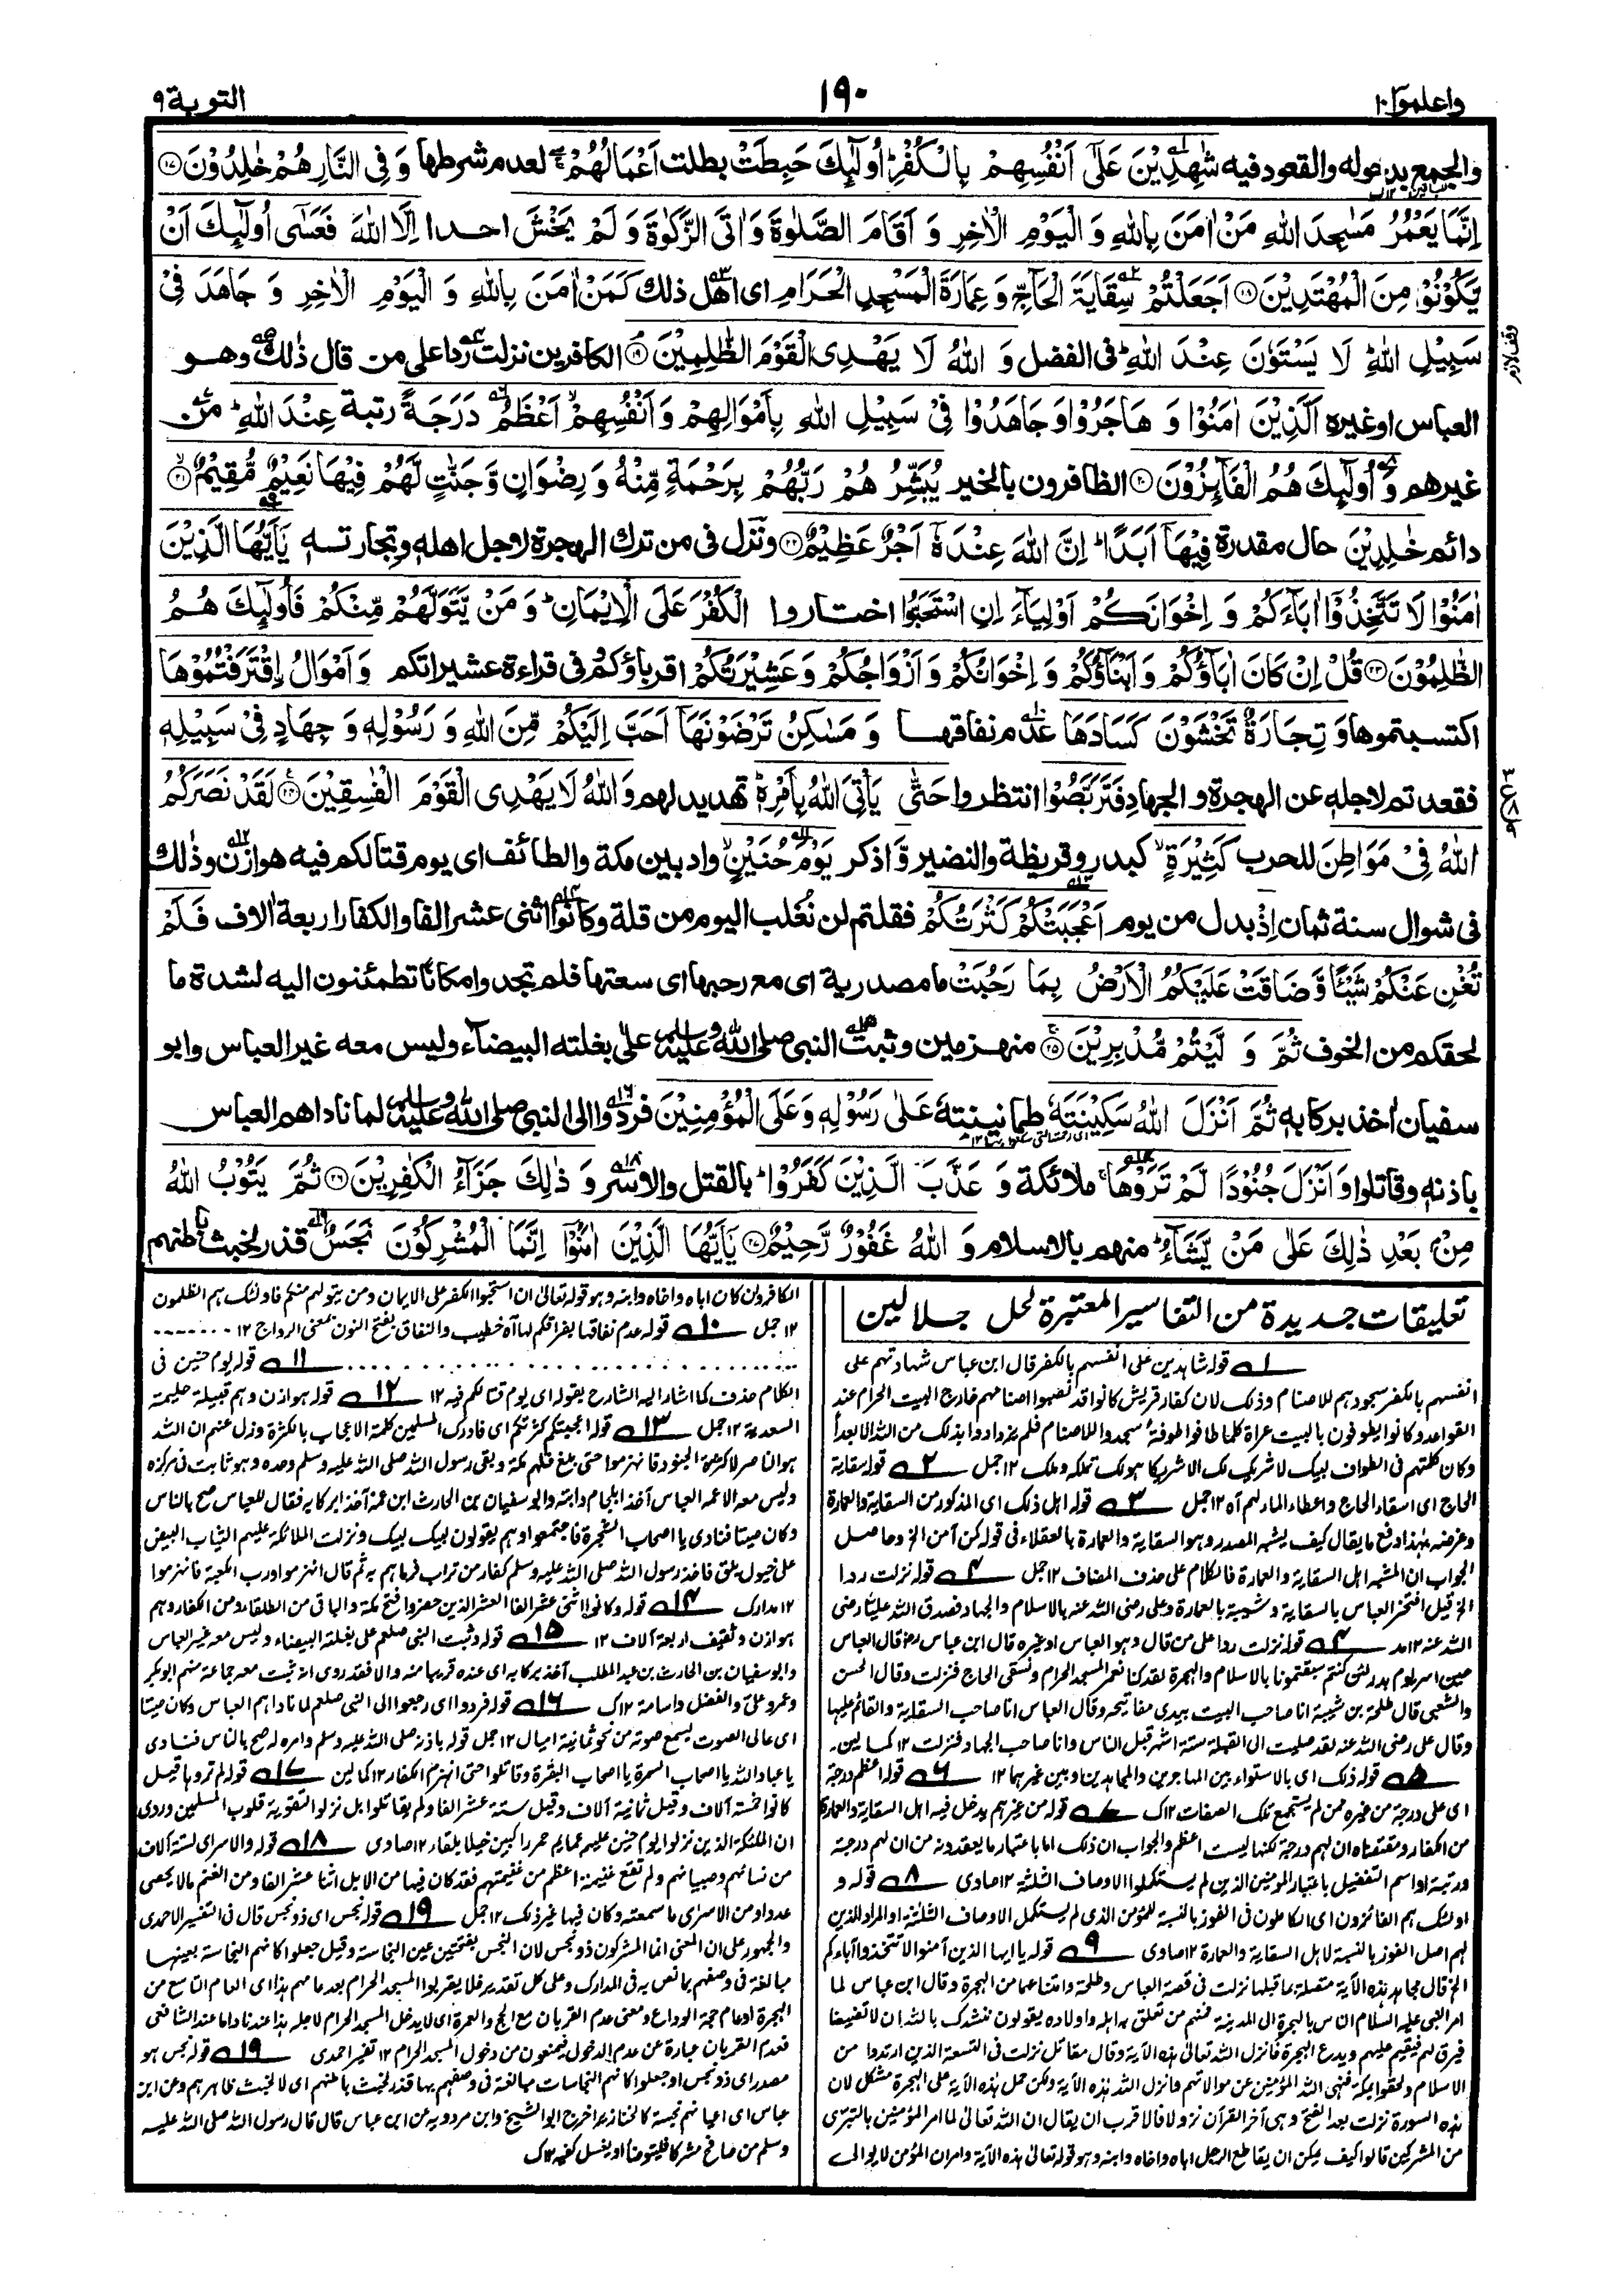 واعلموا١٠
١٩٠
التوبة٩
والجمع بدخوله والقعود فيه شٰهِدِيْنَ عَلٰٓى اَنْفُسِهِمْ بِالْكُفْرِ اُولٰٓئِكَ حَبِطَتْ بطلت اَعْمَالُهُمْ لعدم شرطها وَ فِى النَّارِ هُمْ خٰلِدُوْنَ ١٧
اِنَّمَا يَعْمُرُ مَسٰجِدَ اللهِ مَنْ اٰمَنَ بِاللهِ وَ الْيَوْمِ الْاٰخِرِ وَ اَقَامَ الصَّلٰوةَ وَ اٰتَى الزَّكٰوةَ وَ لَمْ يَخْشَ احدا اِلَّا اللهَ فَعَسٰٓى اُولٰٓئِكَ اَنْ
يَّكُوْنُوْا مِنَ الْمُهْتَدِيْنَ ١٨ اَجَعَلْتُمْ سِقَايَةَ الْحَآجِّ وَ عِمَارَةَ الْمَسْجِدِ الْحَرَامِ اى اهل ذلك كَمَنْ اٰمَنَ بِاللهِ وَ الْيَوْمِ الْاٰخِرِ وَ جَاهَدَ فِىْ
سَبِيْلِ اللهِ لَا يَسْتَوٗنَ عِنْدَ اللهِ فى الفضل وَ اللهُ لَا يَهْدِى الْقَوْمَ الظّٰلِمِيْنَ ١٩ الكافرين نزلت ردا على من قال ذٰلك وهو
العباس او غيره اَلَّذِيْنَ اٰمَنُوْا وَ هَاجَرُوْا وَ جَاهَدُوْا فِىْ سَبِيْلِ اللهِ بِاَمْوَالِهِمْ وَ اَنْفُسِهِمْ اَعْظَمُ دَرَجَةً رتبة عِنْدَ اللهِ من
غيرهم وَ اُولٰٓئِكَ هُمُ الْفَآئِزُوْنَ ٢٠ الظافرون بالخير يُبَشِّرُ هُمْ رَبُّهُمْ بِرَحْمَةٍ مِّنْهُ وَ رِضْوَانٍ وَّ جَنّٰتٍ لَّهُمْ فِيْهَا نَعِيْمٌ مُّقِيْمٌ ٢١
دائم خٰلِدِيْنَ حال مقدرة فِيْهَآ اَبَدًا اِنَّ اللهَ عِنْدَهٗٓ اَجْرٌ عَظِيْمٌ ٢٢ ونزل فى من ترك الهجرة لاجل اهله وتجارته يٰٓاَيُّهَا الَّذِيْنَ
اٰمَنُوْا لَا تَتَّخِذُوْٓا اٰبَآءَكُمْ وَ اِخْوَانَكُمْ اَوْلِيَآءَ اِنِ اسْتَحَبُّوا اختاروا الْكُفْرَ عَلَى الْاِيْمَانِ وَ مَنْ يَّتَوَلَّهُمْ مِّنْكُمْ فَاُولٰٓئِكَ هُمُ
الظّٰلِمُوْنَ ٢٣ قُلْ اِنْ كَانَ اٰبَآؤُكُمْ وَ اَبْنَآؤُكُمْ وَ اِخْوَانُكُمْ وَ اَزْوَاجُكُمْ وَ عَشِيْرَتُكُمْ اقرباؤكم فى قراءة عشيراتكم وَ اَمْوَالُ اِقْتَرَفْتُمُوْهَا
اكتسبتموها وَ تِجَارَةٌ تَخْشَوْنَ كَسَادَهَا عدم نفاقها وَ مَسٰكِنُ تَرْضَوْنَهَآ اَحَبَّ اِلَيْكُمْ مِّنَ اللهِ وَ رَسُوْلِهٖ وَ جِهَادٍ فِىْ سَبِيْلِهٖ
فقعدتم لاجله عن الهجرة و الجهاد فَتَرَبَّصُوْا انتظروا حَتّٰى يَاْتِىَ اللهُ بِاَمْرِهٖ تهديد لهم وَ اللهُ لَا يَهْدِى الْقَوْمَ الْفٰسِقِيْنَ ٢٤ لَقَدْ نَصَرَكُمُ
اللهُ فِىْ مَوَاطِنَ للحرب كَثِيْرَةٍ كبدر و قريظة والنضير وَّ اذكر يَوْمَ حُنَيْنٍ واد بين مكة والطائف اى يوم قتالكم فيه هوازن وذٰلك
فى شوال سنة ثمان اِذْ بدل من يوم اَعْجَبَتْكُمْ كَثْرَتُكُمْ فقلتم لن نُغلب اليوم من قلة وكانوا اثنى عشر الفا والكفار اربعة اٰلاف فَلَمْ
تُغْنِ عَنْكُمْ شَيْئًا وَّ ضَاقَتْ عَلَيْكُمُ الْاَرْضُ بِمَا رَحُبَتْ ما مصدرية اى مع رحبها اى سعتها فلم تجدوا مكانا تطمئنون اليه لشدة ما
لحقكم من الخوف ثُمَّ وَ لَّيْتُمْ مُّدْبِرِيْنَ ٢٥ منهزمين وثبت النبى صلى الله عليه وسلم على بغلته البيضآء وليس معه غير العباس وابو
سفيان اٰخذ بركابه ثُمَّ اَنْزَلَ اللهُ سَكِيْنَتَهٗ طمانينته عَلٰى رَسُوْلِهٖ وَ عَلَى الْمُؤْمِنِيْنَ فردوا الى النبى صلى الله عليه وسلم لما ناداهم العباس
باذنه وقاتلوا وَ اَنْزَلَ جُنُوْدًا لَّمْ تَرَوْهَا ملائكة وَ عَذَّبَ الَّذِيْنَ كَفَرُوْا بالقتل والاسر وَ ذٰلِكَ جَزَآءُ الْكٰفِرِيْنَ ٢٦ ثُمَّ يَتُوْبُ اللهُ
مِنْۢ بَعْدِ ذٰلِكَ عَلٰى مَنْ يَّشَآءُ منهم بالاسلام وَ اللهُ غَفُوْرٌ رَّحِيْمٌ ٢٧ يٰٓاَيُّهَا الَّذِيْنَ اٰمَنُوْٓا اِنَّمَا الْمُشْرِكُوْنَ نَجَسٌ قذر لخبث باطنهم
وقف لازم
تعليقات جديدة من التفاسير المعتبرة لحل جلالين
١ قوله شاهدين على انفسهم بالكفر قال ابن عباس شهادتهم على
انفسهم بالكفر سجودهم للاصنام وذلك لان كفار قريش كانوا قد نصبوا اصنامهم خارج البيت الحرام عند
القواعد وكانوا يطوفون بالبيت عراة كلما طافوا طوفة سجدوا للاصنام فلم يزدادوا بذلك من الله الا بعداً
وكان كلمتهم فى الطواف لبيك لا شريك لك الا شريكا هو لك تملكه وملك ١٢ جمل ٢ قوله سقاية
الحاج اى اسقاء الحاج واعطاء الماء لهم آه ١٢ جمل ٣ قوله اهل ذلك اى المذكور من السقاية والعمارة
وغرضه بهذا دفع ما يقال كيف يشبه المصدر وهو السقاية والعمارة بالعقلاء فى قوله كمن آمن الخ وحاصل
الجواب ان المشبه اهل السقاية والعمارة فالكلام على حذف المضاف ١٢ جمل ٤ قوله نزلت ردا
الخ قيل افتخر العباس بالسقاية وشيبة بالعمارة وعلى رضى الله عنه بالاسلام والجهاد فصدق الله عليّا رضى
الله عنه ١٢ مد ٤ قوله نزلت ردا على من قال وهو العباس او غيره قال ابن عباس رض قال العباس
حين اسر يوم بدر لئن كنتم سبقتمونا بالاسلام والهجرة لقد كنا نعمر المسجد الحرام ونسقى الحاج فنزلت وقال الحسن
والشعبى قال طلحة بن شيبة انا صاحب البيت بيدى مفاتيحه وقال العباس انا صاحب السقاية والقائم عليها
وقال على رضى الله عنه لقد صليت الى القبلة ستة اشهر قبل الناس وانا صاحب الجهاد فنزلت ١٢ كمالين۔
٥ قوله ذلك اى بالاستواء بين المهاجرين والمجاهدين وبين غيرهما ١٢ ٦ قوله اعظم درجة
اى على درجة من غيره ممن لم يستجمع تلك الصفات ١٢ ك ٧ قوله من غيرهم يدخل فيه اهل السقاية والعمارة
من الكفار ومقتضاه ان لهم درجة لكنها ليست اعظم والجواب ان ذلك اما باعتبار ما يعتقدونه من ان لهم درجة
ورتبة او اسم التفضيل باعتبار المؤمنين الذين لم يستكملوا الاوصاف الثلثة ١٢ صاوى ٨ قوله و
اولئك هم الفائزون اى الكاملون فى الفوز بالنسبة للمؤمن الذى لم يستكمل الاوصاف الثلثة او المراد الذين
لهم اصل الفوز بالنسبة لاهل السقاية والعمارة ١٢ صاوى ٩ قوله يا ايها الذين آمنوا لا تتخذوا آباءكم
الخ قال مجاهد هذه الآية متصلة بما قبلها نزلت فى قصة العباس وطلحة وامتناعهما من الهجرة وقال ابن عباس لما
امر النبى عليه السلام الناس بالهجرة الى المدينة فمنهم من تعلق به اهله واولاده يقولون ننشدك بالله ان لا تضيعنا
فيرق لهم فيقيم عليهم ويدع الهجرة فانزل الله تعالى هذه الآية وقال مقاتل نزلت فى التسعة الذين ارتدوا من
الاسلام ولحقوا بمكة فنهى الله المؤمنين عن موالاتهم وانزل الله هذه الآية ولكن حمل هذه الآية على الهجرة مشكل لان
هذه السورة نزلت بعد الفتح وهى آخر القرآن نزولا فالاقرب ان يقال ان الله تعالى لما امر المؤمنين بالتبرى
من المشركين قالوا كيف يمكن ان يقاطع الرجل اباه واخاه وابنه وهو قوله تعالى هذه الآية وامر ان المؤمن لا يوالى
الكافر وان كان اباه واخاه وابنه وهو قوله تعالى ان استحبوا الكفر على الايمان ومن يتولهم منكم فاولئك هم الظلمون
١٢ جمل ١٠ قوله عدم نفاقها بفراقكم لها آه خطيب والنفاق بفتح النون بمعنى الرواج ١٢
١١ قوله يوم حنين فى
الكلام حذف كما اشار اليه الشارح بقوله اى يوم قتالكم فيه ١٢ ١٢ قوله هوازن وهم قبيلة حليمة
السعدية ١٢ جمل ١٣ قوله اعجبتكم كثرتكم اى فادرك المسلمين كلمة الاعجاب بالكثرة وزل عنهم ان الله
هو الناصر لا كثرة الجنود فانهزموا حتى بلغ فلهم مكة وبقى رسول الله صلى الله عليه وسلم وحده وهو ثابت فى مركزه
وليس معه الا عمه العباس آخذ بلجام دابته وابو سفيان بن الحارث ابن عمه آخذ بركابه فقال للعباس صح بالناس
وكان صيتا فنادى يا اصحاب الشجرة فاجتمعوا وهم يقولون لبيك لبيك ونزلت الملائكة عليهم الثياب البيض
على خيول بلق فاخذ رسول الله صلى الله عليه وسلم كفا من تراب فرماهم به ثم قال انهزموا ورب الكعبة فانهزموا
١٢ مدارك ١٤ قوله وكانوا اثنى عشر الفا العشر الذين حضروا فتح مكة والباقى من الطلقاء ومن الكفار وهم
هوازن وثقيف اربعة آلاف ١٢ ١٥ قوله وثبت النبى صلعم على بغلته البيضاء وليس معه غير العباس
وابو سفيان بن الحارث بن عبد المطلب آخذ بركابه اى عنده قريبا منه والا فقد روى انه ثبت معه جماعة منهم ابو بكر
وعمر وعلى والفضل واسامة ١٢ ك ١٦ قوله فردوا اى رجعوا الى النبى صلعم لما ناداهم العباس وكان صيتا
اى عالى الصوت يسمع صوته من نحو ثمانية اميال ١٢ جمل قوله باذنه صلى الله عليه وسلم وامره له صح بالناس فنادى
يا عباد الله يا اصحاب السمرة يا اصحاب البقرة وقاتلوا حتى انهزم الكفار ١٢ كمالين ١٧ قوله لم تروها قيل
كانوا خمسة آلاف وقيل ثمانية آلاف وقيل ستة عشر الفا ولم يقاتلوا بل نزلوا لتقوية قلوب المسلمين وروى
ان الملئكة الذين نزلوا يوم حنين عليهم عمايم حمر راكبين خيلا بلقاء ١٢ صاوى ١٨ قوله والاسر اى لستة آلاف
من نسائهم وصبيانهم ولم تقع غنيمة اعظم من غنيمتهم فقد كان فيها من الابل اثنا عشر الفا ومن الغنم مالا يحصى
عددا ومن الاسرى ما سمعته وكان فيها غير ذلك ١٢ جمل ١٩ قوله نجس اى ذو نجس قال فى التفسير الاحمدى
والجمهور على ان المعنى انما المشركون ذو نجس لان النجس بفتحتين عين النجاسة وقيل جعلوا كانهم النجاسة بعينها
مبالغة فى وصفهم بها نص به فى المدارك وعلى كل تقدير فلا يقربوا المسجد الحرام بعد عامهم هذا اى العام التاسع من
الهجرة او عام حجة الوداع ومعنى عدم القربان مع الحج والعمرة اى لا يدخل المسجد الحرام لاجله هذا عندنا واما عند الشافعى
فعدم القربان عبارة عن عدم الدخول فيمنعون من دخول المسجد الحرام ١٢ تفسير احمدى ١٩ قوله نجس هو
مصدر اى ذو نجس او جعلوا كانهم النجاسات مبالغة فى وصفهم بها قذر لخبث باطنهم اى لا لخبث ظاهرهم وعن ابن
عباس اى اعيانهم نجسة كالخنازير اخرج ابو الشيخ وابن مردويه عن ابن عباس قال قال رسول الله صلى الله عليه
وسلم من صافح مشركا فليتوضأ او يغسل كفيه ١٢ ك